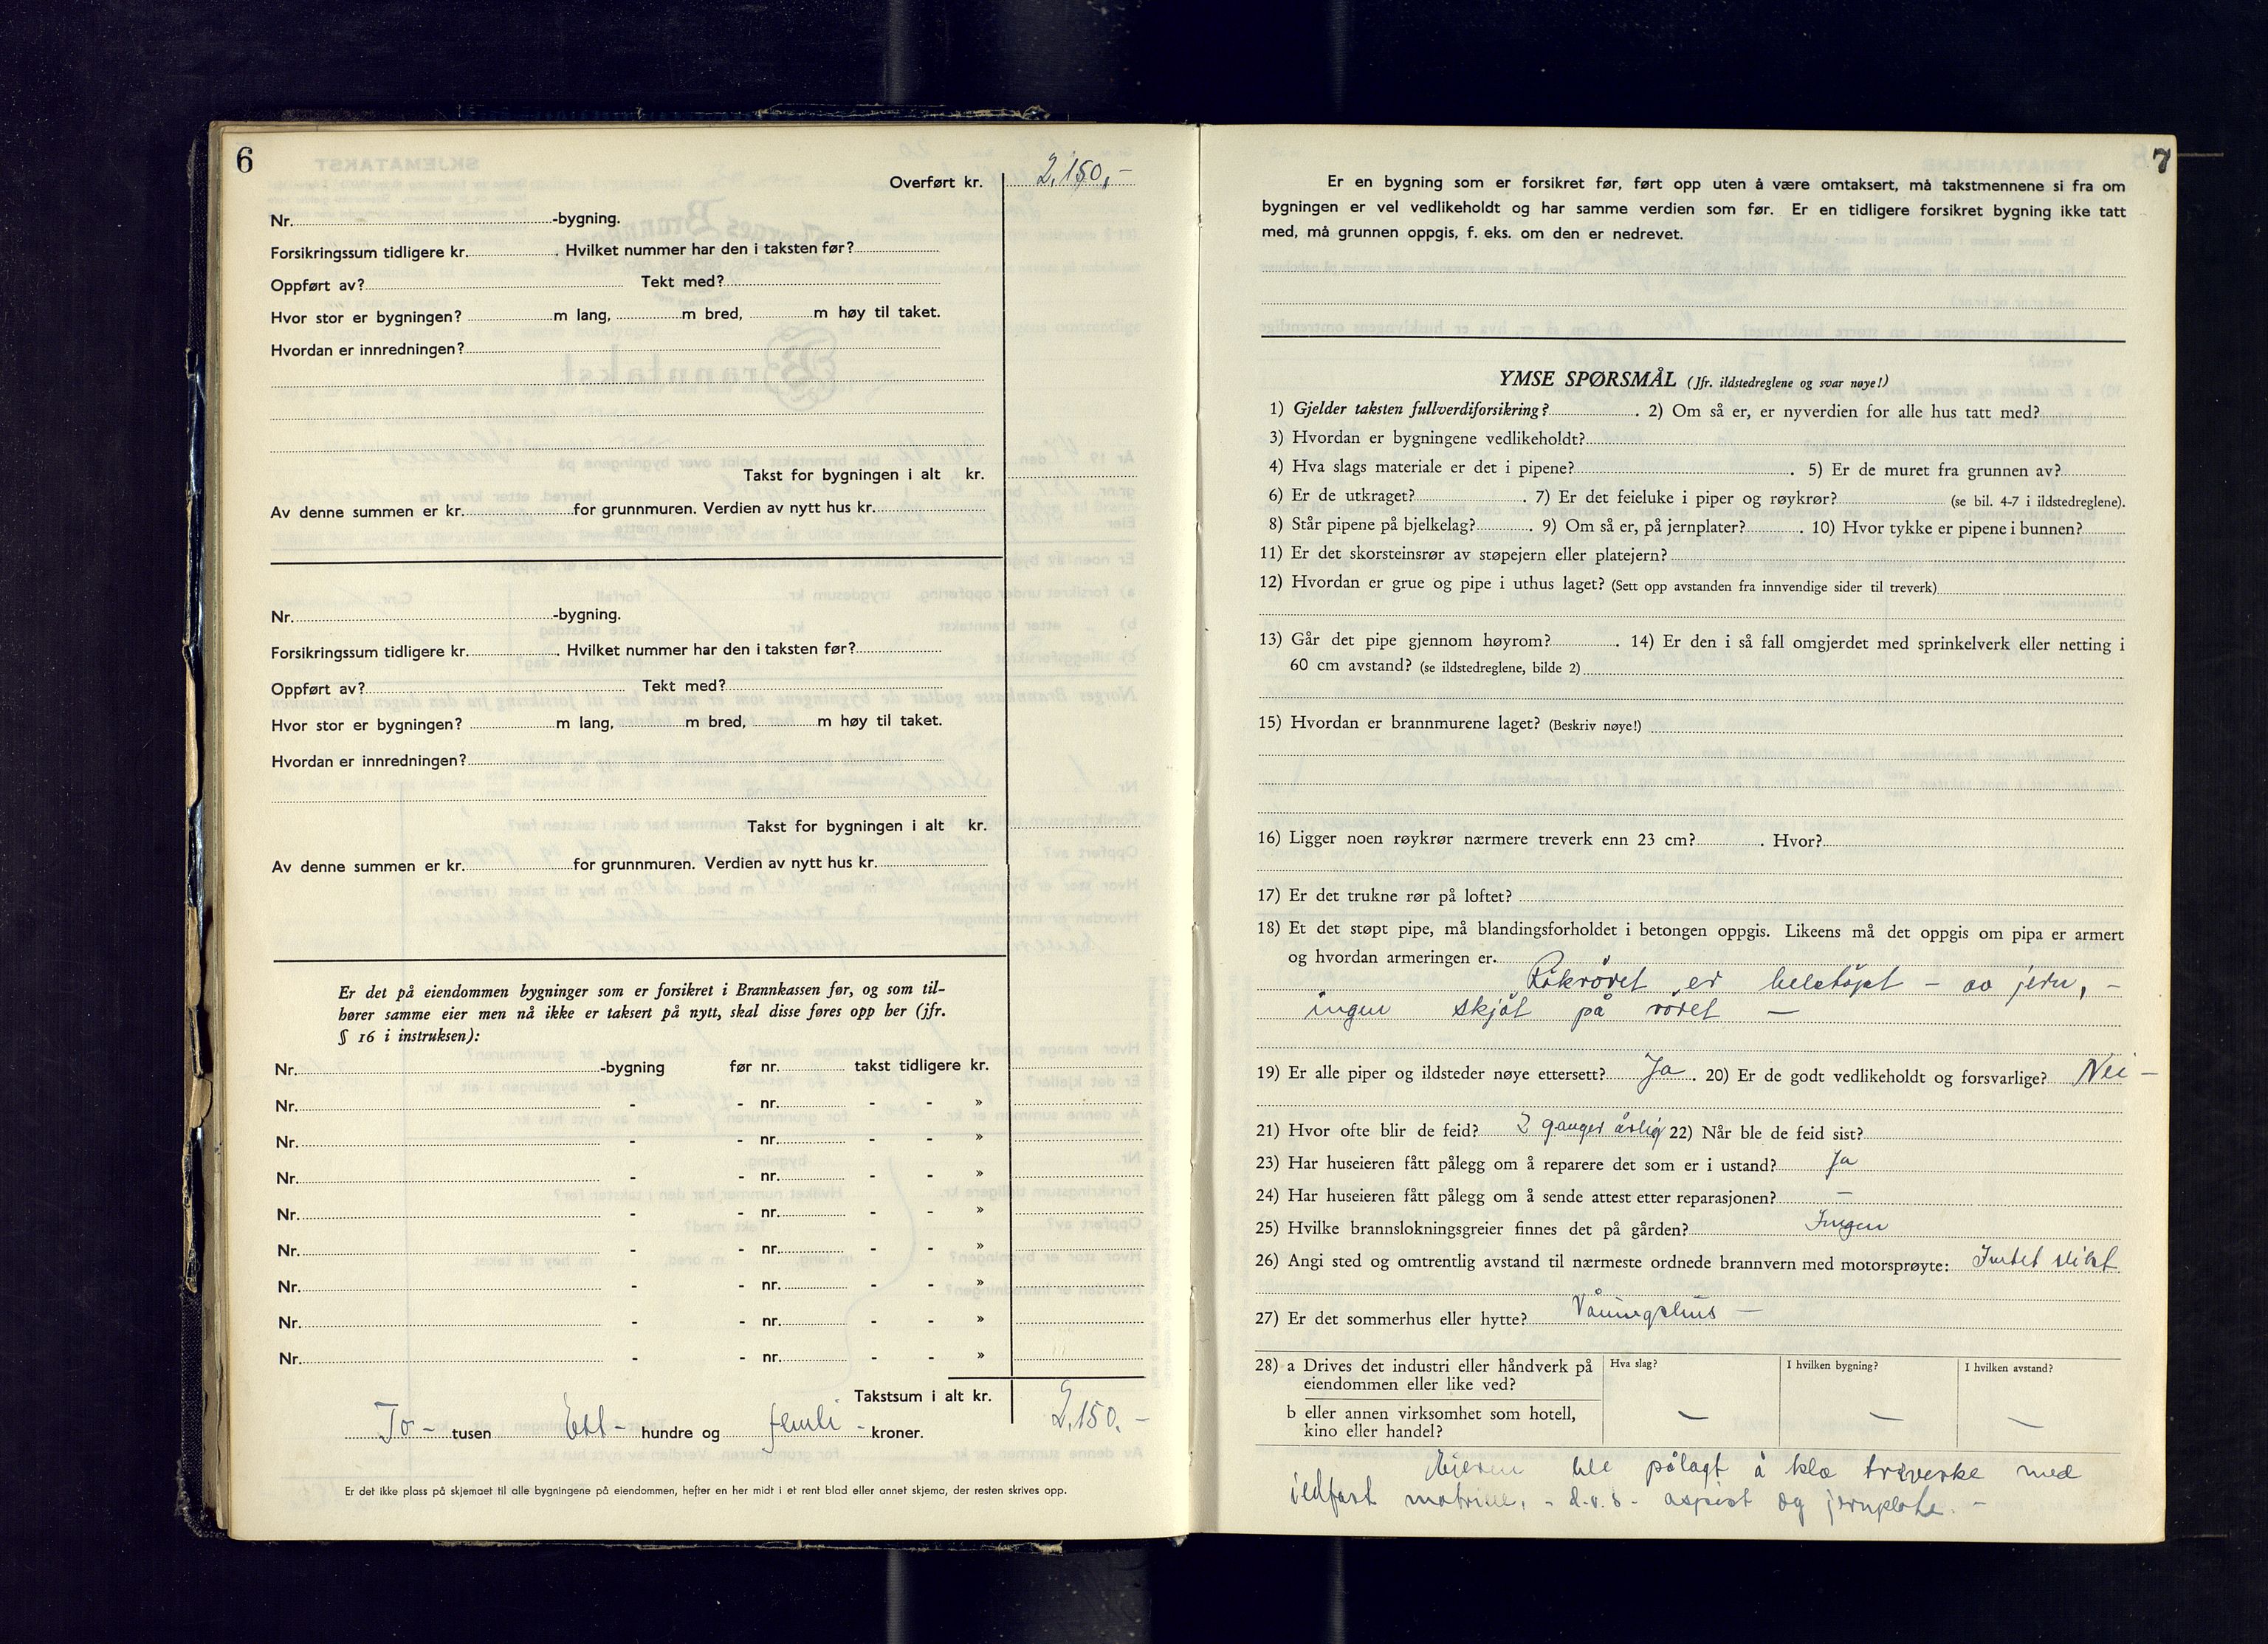 6
Overført kr. 2.150,-
Nr. -bygning.
Forsikringssum tidligere kr. . Hvilket nummer har den i taksten før?
Oppført av? Tekt med?
Hvor stor er bygningen? m lang, m bred, m høy til taket.
Hvordan er innredningen?
Takst for bygningen i alt kr.
Av denne summen er kr. for grunnmuren. Verdien av nytt hus kr.
Nr. -bygning.
Forsikringssum tidligere kr. . Hvilket nummer har den i taksten før?
Oppført av? Tekt med?
Hvor stor er bygningen? m lang, m bred, m høy til taket.
Hvordan er innredningen?
Takst for bygningen i alt kr.
Av denne summen er kr. for grunnmuren. Verdien av nytt hus kr.
Er det på eiendommen bygninger som er forsikret i Brannkassen før, og som til-
hører samme eier men nå ikke er taksert på nytt, skal disse føres opp her (jfr.
§ 16 i instruksen):
Nr. -bygning før nr. takst tidligere kr.
Nr. - - nr. - - »
Nr. - - nr. - - »
Nr. - - nr. - - »
Nr. - - nr. - - »
Nr. - - nr. - - »
Nr. - - nr. - - »
Nr. - - nr. - - »
Nr. - - nr. - - »
Takstsum i alt kr. 2.150.-
To - tusen Ett - hundre og femti - kroner.
Er det ikke plass på skjemaet til alle bygningene på eiendommen, hefter en her midt i et rent blad eller annet skjema, der resten skrives opp.
7
Er en bygning som er forsikret før, ført opp uten å være omtaksert, må takstmennene si fra om
bygningen er vel vedlikeholdt og har samme verdien som før. Er en tidligere forsikret bygning ikke tatt
med, må grunnen oppgis, f. eks. om den er nedrevet.
YMSE SPØRSMÅL (Jfr. ildstedreglene og svar nøye!)
1) Gjelder taksten fullverdiforsikring? . 2) Om så er, er nyverdien for alle hus tatt med?
3) Hvordan er bygningene vedlikeholdt?
4) Hva slags materiale er det i pipene? . 5) Er de muret fra grunnen av?
6) Er de utkraget? . 7) Er det feieluke i piper og røykrør? (se bil. 4-7 i ildstedreglene).
8) Står pipene på bjelkelag? . 9) Om så er, på jernplater? . 10) Hvor tykke er pipene i bunnen?
11) Er det skorsteinsrør av støpejern eller platejern?
12) Hvordan er grue og pipe i uthus laget? (Sett opp avstanden fra innvendige sider til treverk)
13) Går det pipe gjennom høyrom? . 14) Er den i så fall omgjerdet med sprinkelverk eller netting i
60 cm avstand? (se ildstedreglene, bilde 2)
15) Hvordan er brannmurene laget? (Beskriv nøye!)
16) Ligger noen røykrør nærmere treverk enn 23 cm? . Hvor?
17) Er det trukne rør på loftet?
18) Et det støpt pipe, må blandingsforholdet i betongen oppgis. Likeens må det oppgis om pipa er armert
og hvordan armeringen er.
Rökröret er helstöpt - av jern, -
ingen skjöt på röret -
19) Er alle piper og ildsteder nøye ettersett? Ja . 20) Er de godt vedlikeholdt og forsvarlige? Nei -
21) Hvor ofte blir de feid? 2 ganger årlig 22) Når ble de feid sist?
23) Har huseieren fått pålegg om å reparere det som er i ustand? Ja
24) Har huseieren fått pålegg om å sende attest etter reparasjonen? -
25) Hvilke brannslokningsgreier finnes det på gården? Ingen
26) Angi sted og omtrentlig avstand til nærmeste ordnede brannvern med motorsprøyte: Intet slikt
27) Er det sommerhus eller hytte? Våningshus -
28) a Drives det industri eller håndverk på Hva slag? I hvilken bygning? I hvilken avstand?
eiendommen eller like ved?
b eller annen virksomhet som hotell, - - -
kino eller handel?
Eieren ble pålagt å kle treverke med
ildfast - d.v.s. - og jernplate. -